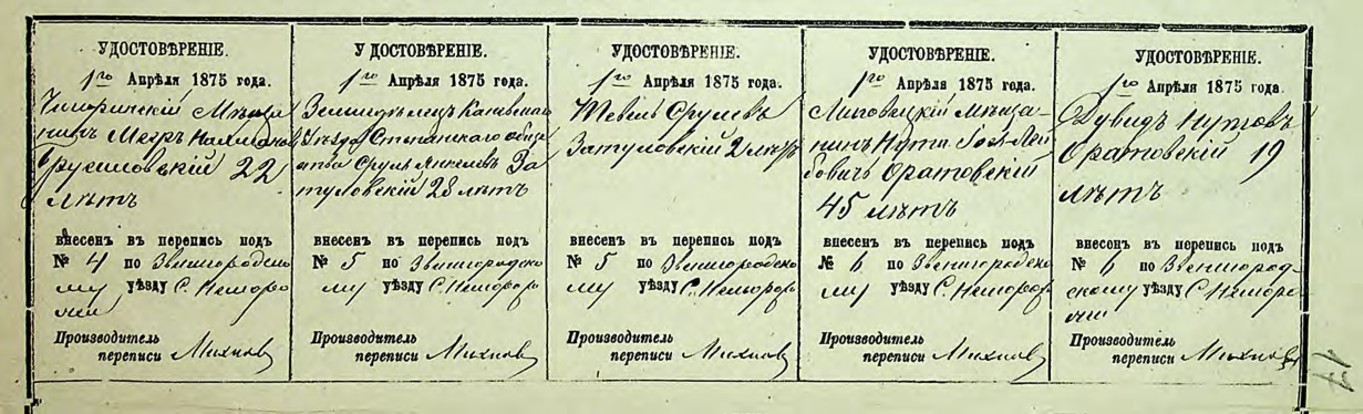 УДОСТОВѢРЕНІЕ.
1го Апрѣля 1875 года.
Мѣща
нинъ Мееръ
22
лѣтъ
внесенъ въ перепись подъ
№ 4 по Звенигородско
му уѣзду С. Неморо
жи
Производитель
переписи Михнов
УДОСТОВѢРЕНІЕ.
1го Апрѣля 1875 года.
Земледѣлецъ Каневскаго
Уѣзда Степанскаго общес
тва Сруль Янкелевъ За
туловскій 28 лѣтъ
внесенъ въ перепись подъ
№ 5 по Звенигородско
му уѣзду С. Неморож
Производитель
переписи Михнов
УДОСТОВѢРЕНІЕ.
1го Апрѣля 1875 года.
Тевель Срулевъ
Затуловскій 2 лѣтъ
внесенъ въ перепись подъ
№ 5 по Звенигородско
му уѣзду С. Неморож
Производитель
переписи Михнов
УДОСТОВѢРЕНІЕ.
1го Апрѣля 1875 года.
Липовецкій Мѣща-
нинъ Нута Лей
бовичъ Оратовскій
45 лѣтъ
внесенъ въ перепись подъ
№ 6 по Звенигородско
му уѣзду С. Неморож
Производитель
переписи Михнов
УДОСТОВѢРЕНІЕ.
1го Апрѣля 1875 года.
Дувидъ Нутовъ
Оратовскій 19
лѣтъ
внесенъ въ перепись подъ
№ 6 по Звенигород-
скому уѣзду С. Неморо
жи
Производитель
переписи Михнов